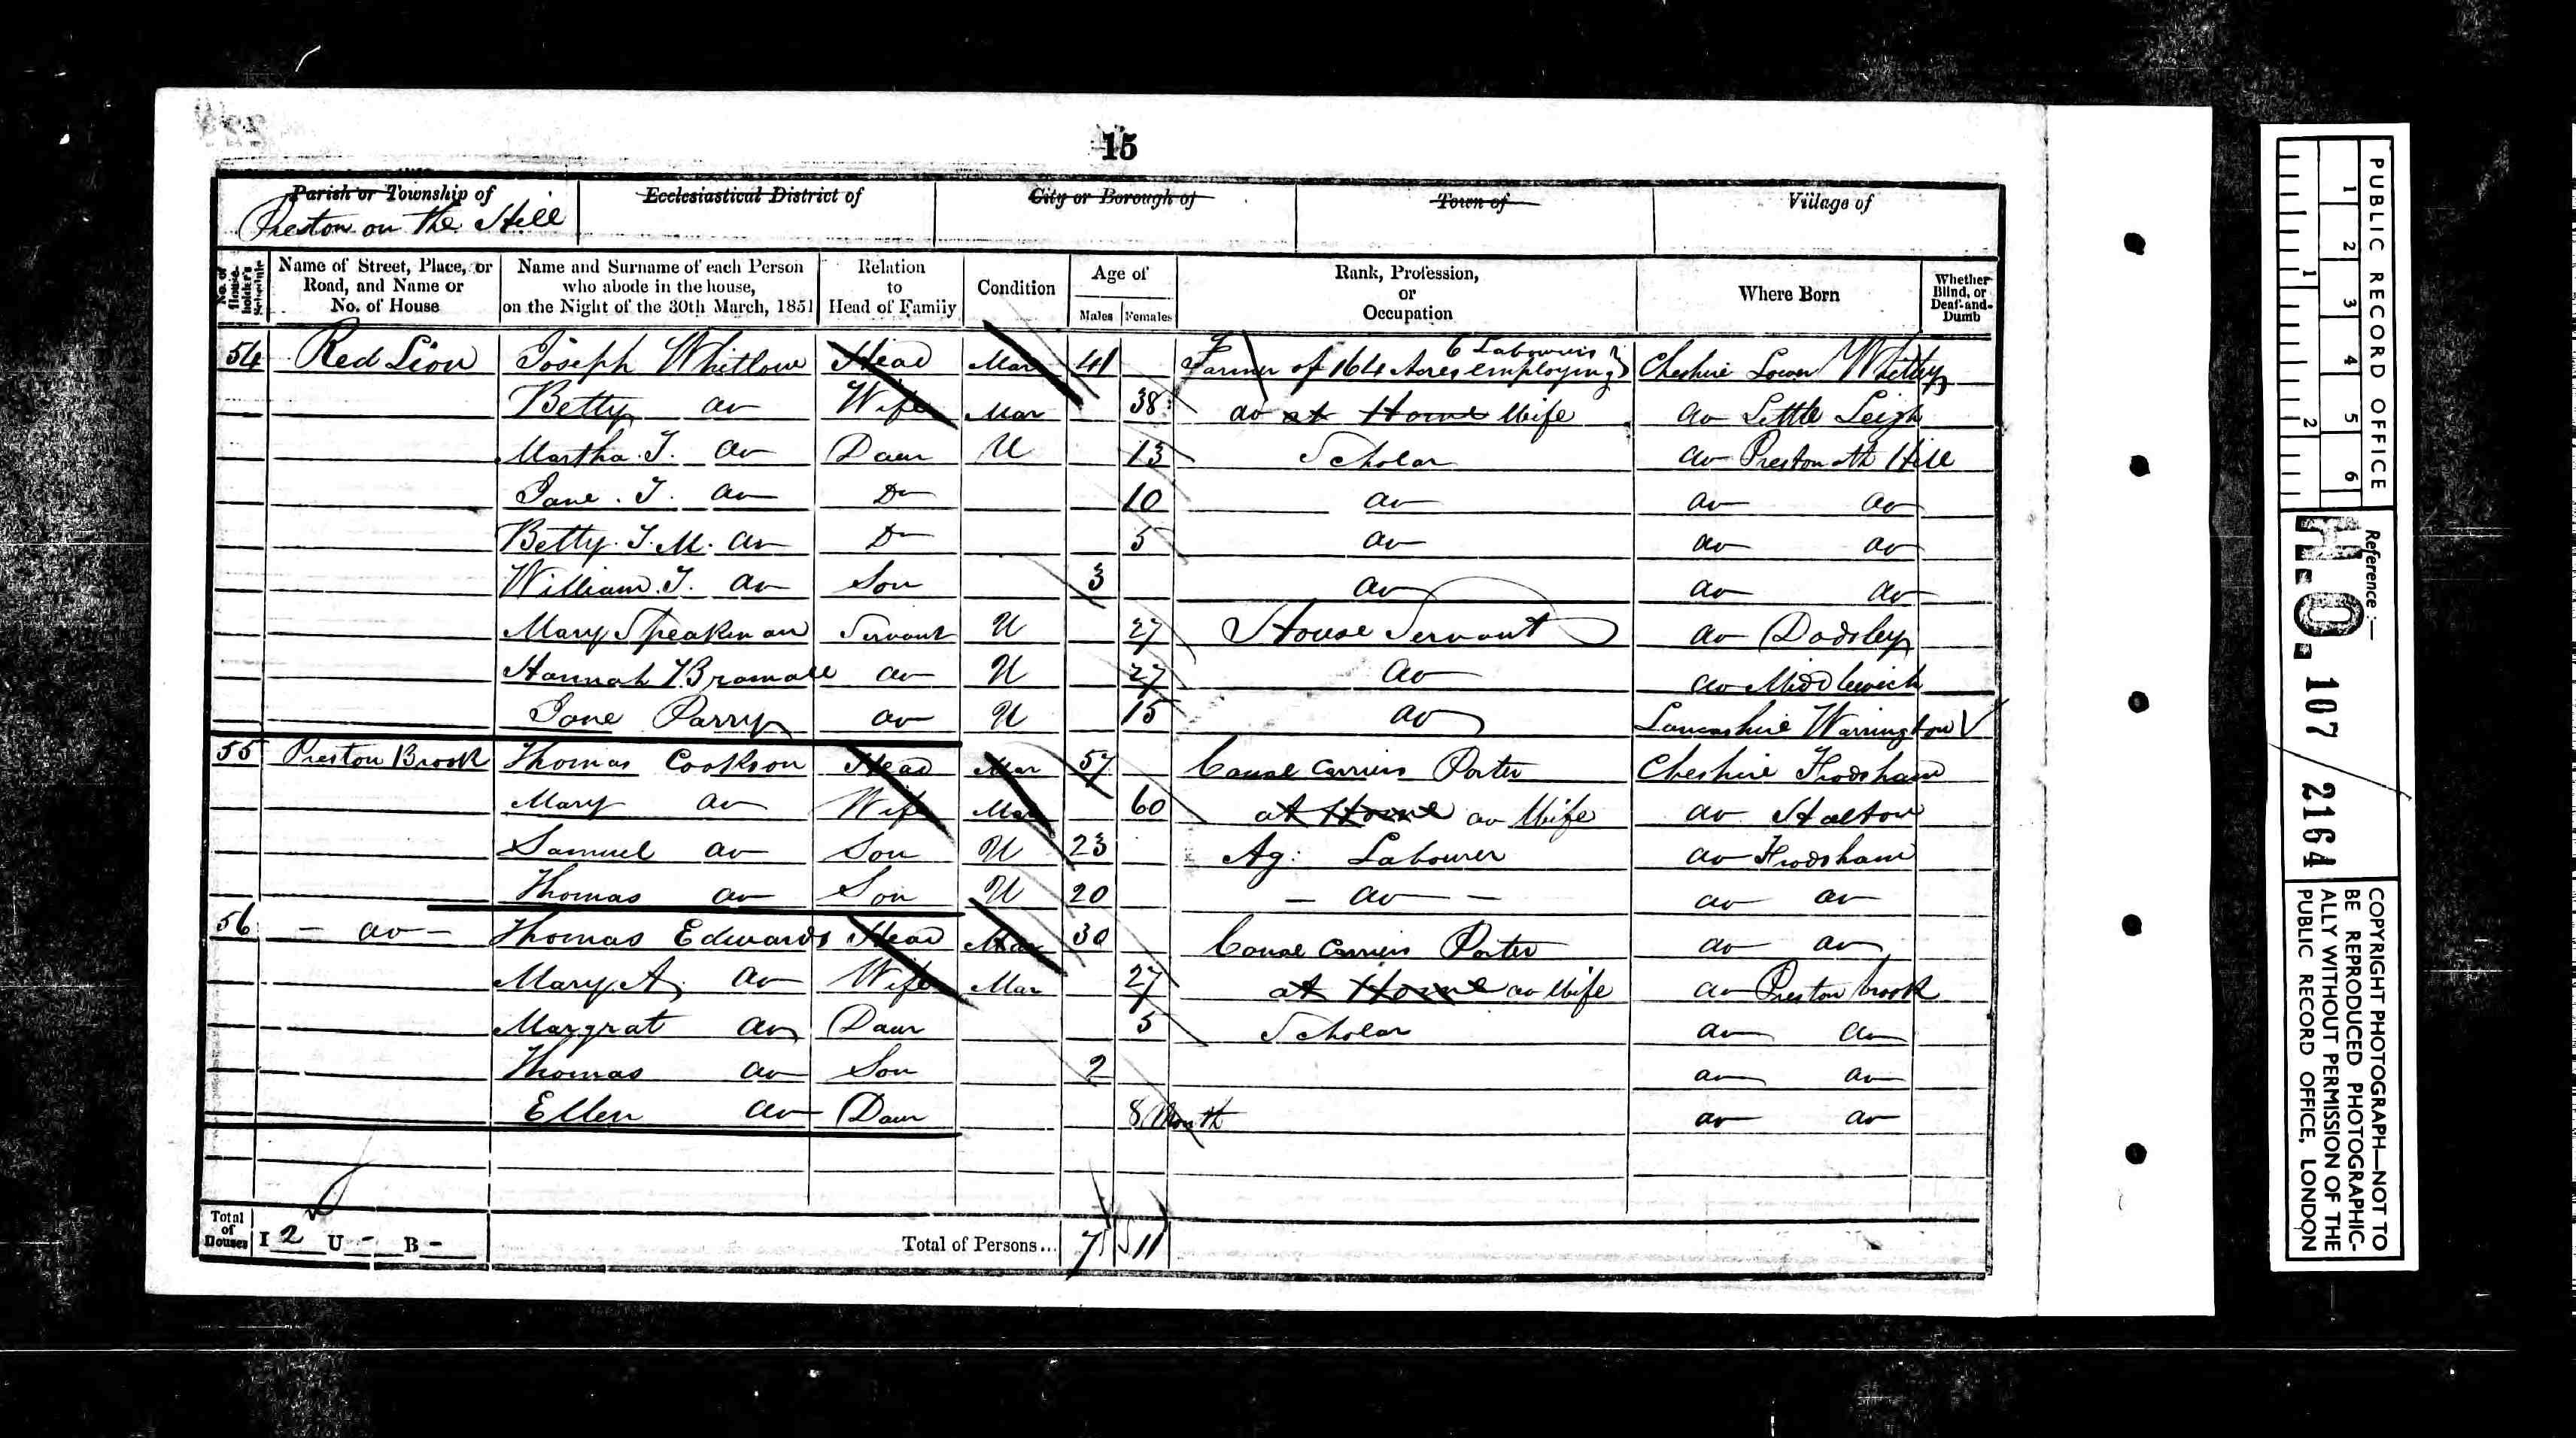 15
Parish or Township of
Preston on the Hill
Ecclesiastical District of
City or Borough of
Town of
Village of
No. of House-holder's Schedule
Name of Street, Place, or Road, and Name or No. of House
Name and Surname of each Person who abode in the house, on the Night of the 30th March, 1851
Relation to Head of Family
Condition
Age of
Males
Females
Rank, Profession, or Occupation
Where Born
Whether Blind, or Deaf-and-Dumb
54 Red Lion Joseph Whitlow Head Mar 41 Farmer of 164 Acres employing 6 Labourers Cheshire Lower Whitley
Betty do Wife Mar 38 do at Home Wife do Little Leigh
Martha. T. do Daur U 13 Scholar do Preston oth Hill
Jane. T. do Do 10 do do do
Betty. T. M. do Do 5 do do do
William. T. do Son 3 do do do
Mary Speakman Servant U 27 House Servant do
Hannah Bramall do U 27 do do Middlewich
Jane Parry do U 15 do Lancashire Warrington
55 Preston Brook Thomas Cookson Head Mar 57 Canal Carriers Porter Cheshire Frodsham
Mary do Wife Mar 60 at Home do Wife do Halton
Samuel do Son U 23 Ag: Labourer do Frodsham
Thomas do Son U 20 - do - do do
56 - do - Thomas Edwards Head Mar 30 Canal Carriers Porter do do
Mary A. do Wife Mar 27 at Home do Wife do Preston brook
Margrat do Daur 5 Scholar do do
Thomas do Son 2 do do
Ellen do Daur 8 Month do do
Total of Houses I 2 U - B -
Total of Persons... 7 11
PUBLIC RECORD OFFICE
1 2 3 4 5 6
1 2
Reference :—
H.O. 107 2164
COPYRIGHT PHOTOGRAPH—NOT TO
BE REPRODUCED PHOTOGRAPHIC-
ALLY WITHOUT PERMISSION OF THE
PUBLIC RECORD OFFICE, LONDON